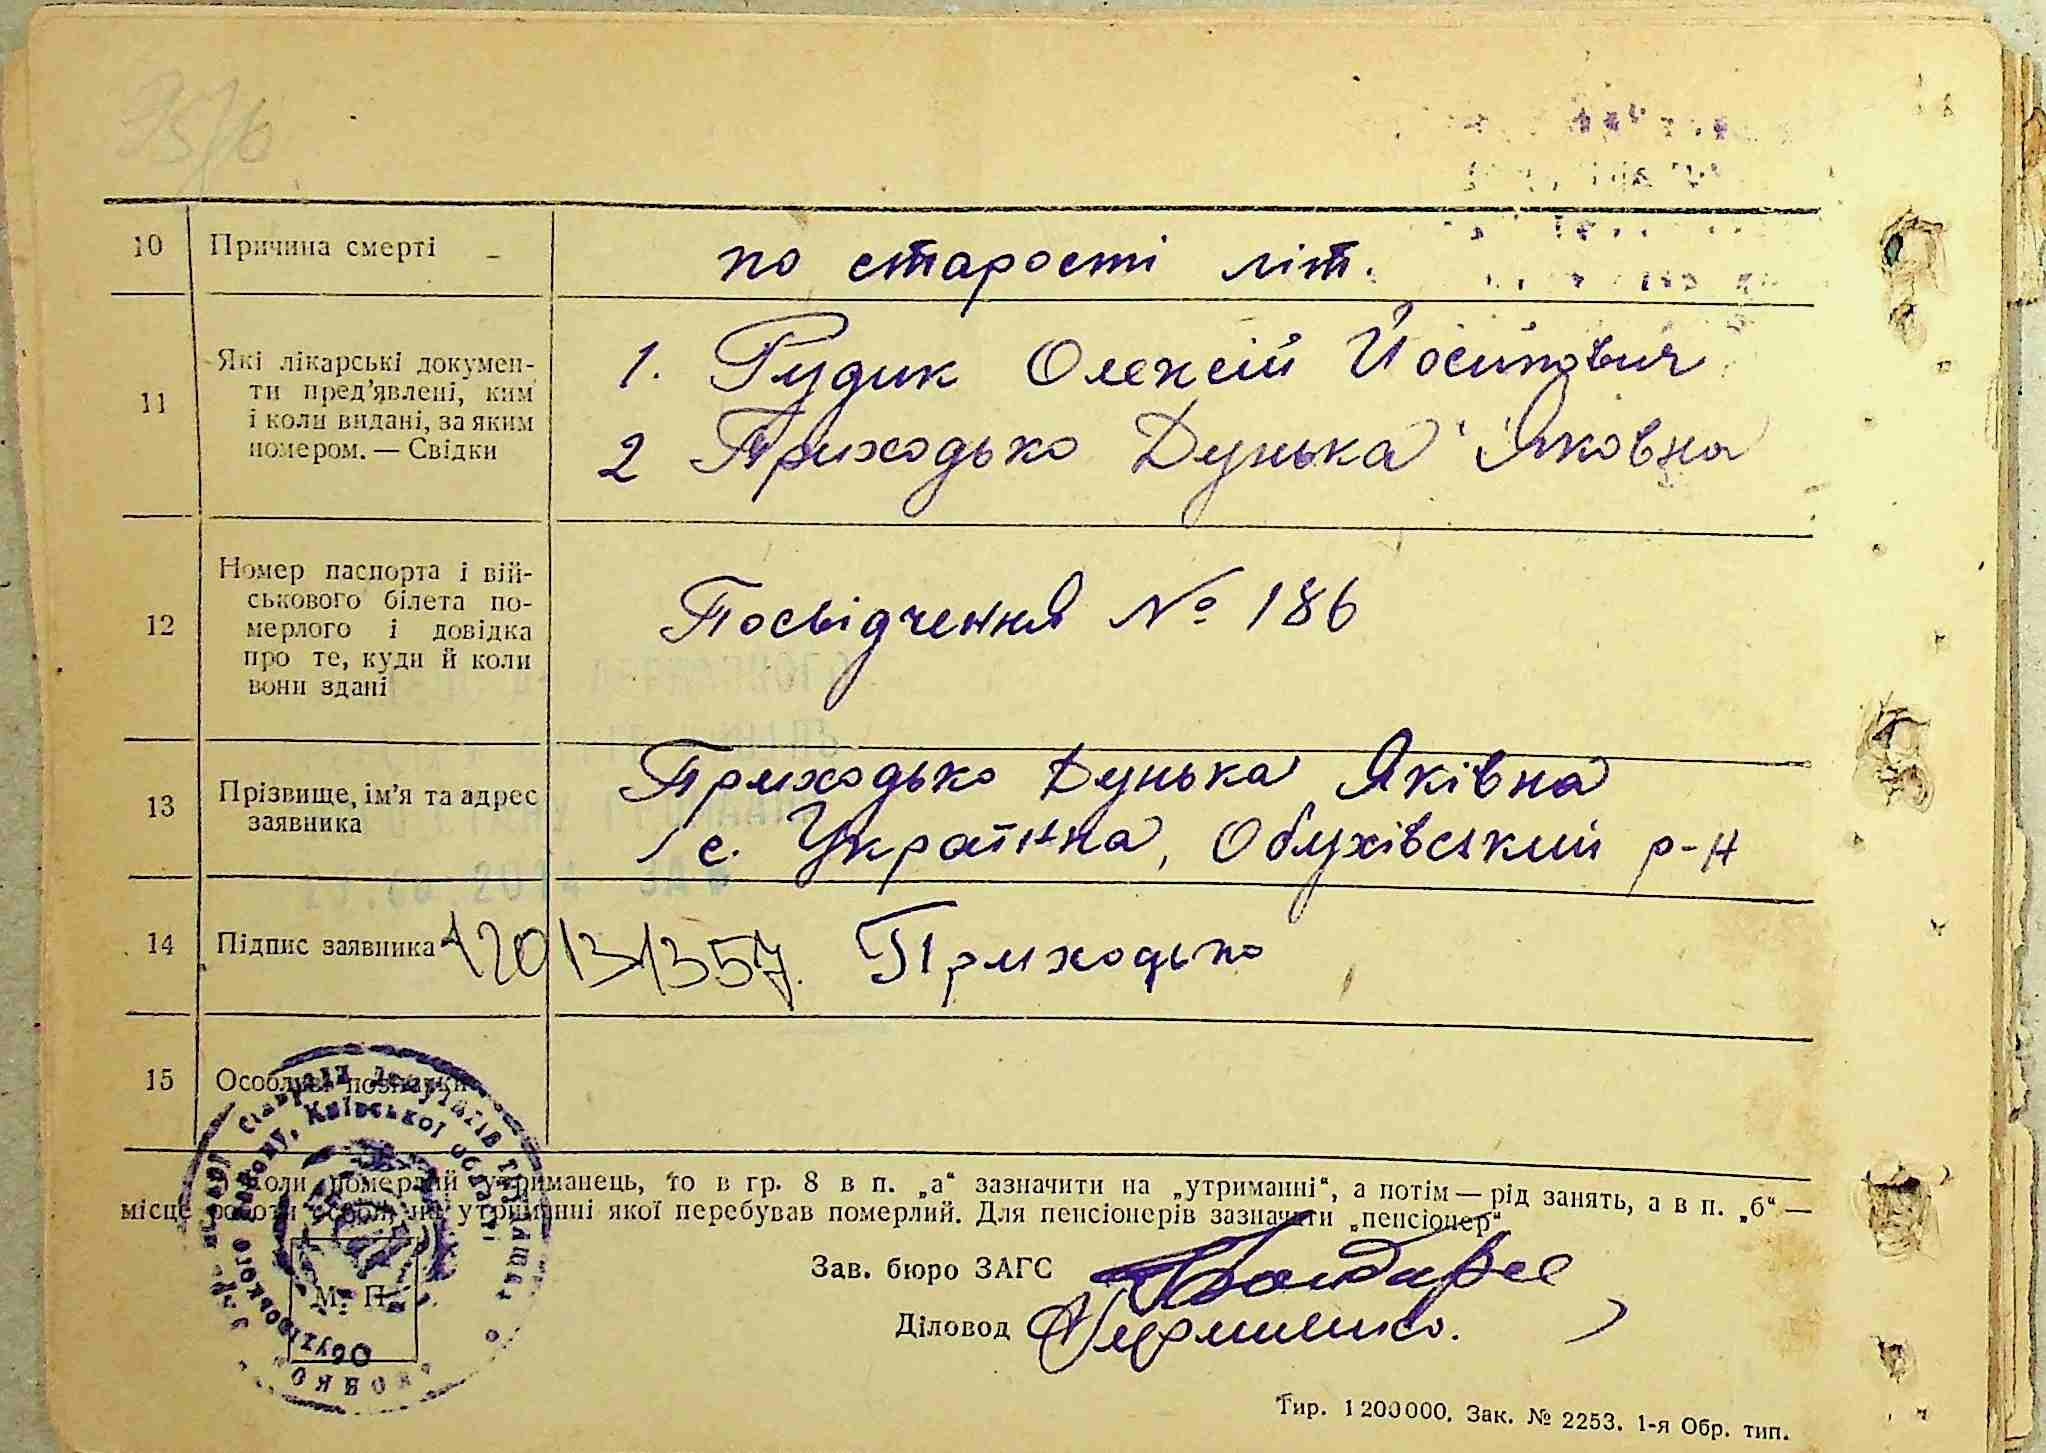 10 Причина смерті по старості літ.
11 Які лікарські докумен-
ти пред'явлені, ким
і коли видані, за яким
номером. — Свідки
1. Рудик Олексій Йосипович
2 Приходько Дунька Яковна
12 Номер паспорта і вій-
ськового білета по-
мерлого і довідка
про те, куди й коли
вони здані
Посвідчення № 186
13 Прізвище, ім'я та адрес
заявника
Приходько Дунька Яківна
с. Українка, Обухівський р-н
14 Підпис заявника Приходько
15 Особливі познаки
Коли померлий утриманець, то в гр. 8 в п. „а“ зазначити на „утриманні“, а потім — рід занять, а в п. „б“ —
місце роботи особи, на утриманні якої перебував померлий. Для пенсіонерів зазначити „пенсіонер“
Зав. бюро ЗАГС
Діловод
М. П.
Обухівського району, Київської області
Тир. 1200000. Зак. № 2253. 1-я Обр. тип.